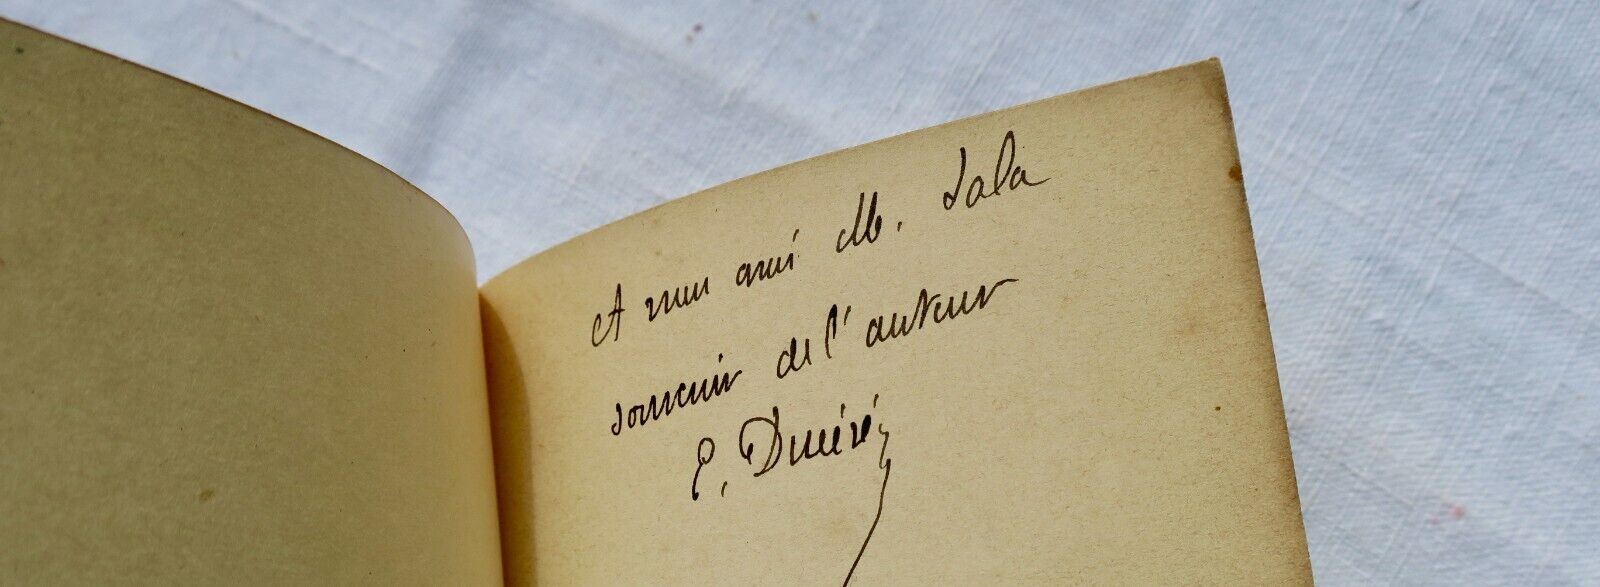 A mon ami M. Sala
souvenir de l'auteur
E.